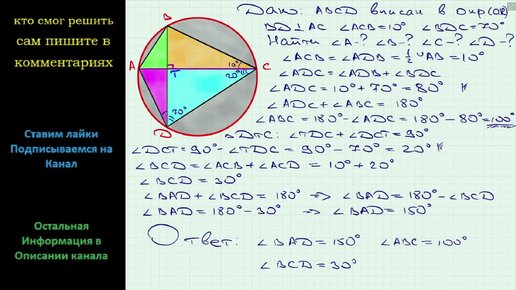 кто смог решить
сам пишите в
комментариях
Ставим лайки
Подписываемся на
Канал
Остальная
Информация в
Описании канала
B
A
T
C
D
10°
20°
70°
Дано: ABCD вписан в Окр(O;R)
BD⊥AC ∠ACB=10° ∠BDC=70°
Найти ∠A-? ∠B-? ∠C-? ∠D-?
∠ACB = ∠ADB = ½ ∪AB = 10°
∠ADC = ∠ADB + ∠BDC
∠ADC = 10° + 70° = 80°
∠ADC + ∠ABC = 180°
∠ABC = 180° - ∠ADC = 180° - 80° = 100°
△DTC: ∠TDC + ∠DCT = 90°
∠DCT = 90° - ∠TDC = 90° - 70° = 20°
∠BCD = ∠ACB + ∠ACD = 10° + 20°
∠BCD = 30°
∠BAD + ∠BCD = 180° => ∠BAD = 180° - ∠BCD
∠BAD = 180° - 30° => ∠BAD = 150°
Ответ: ∠BAD = 150° ∠ABC = 100°
∠BCD = 30°